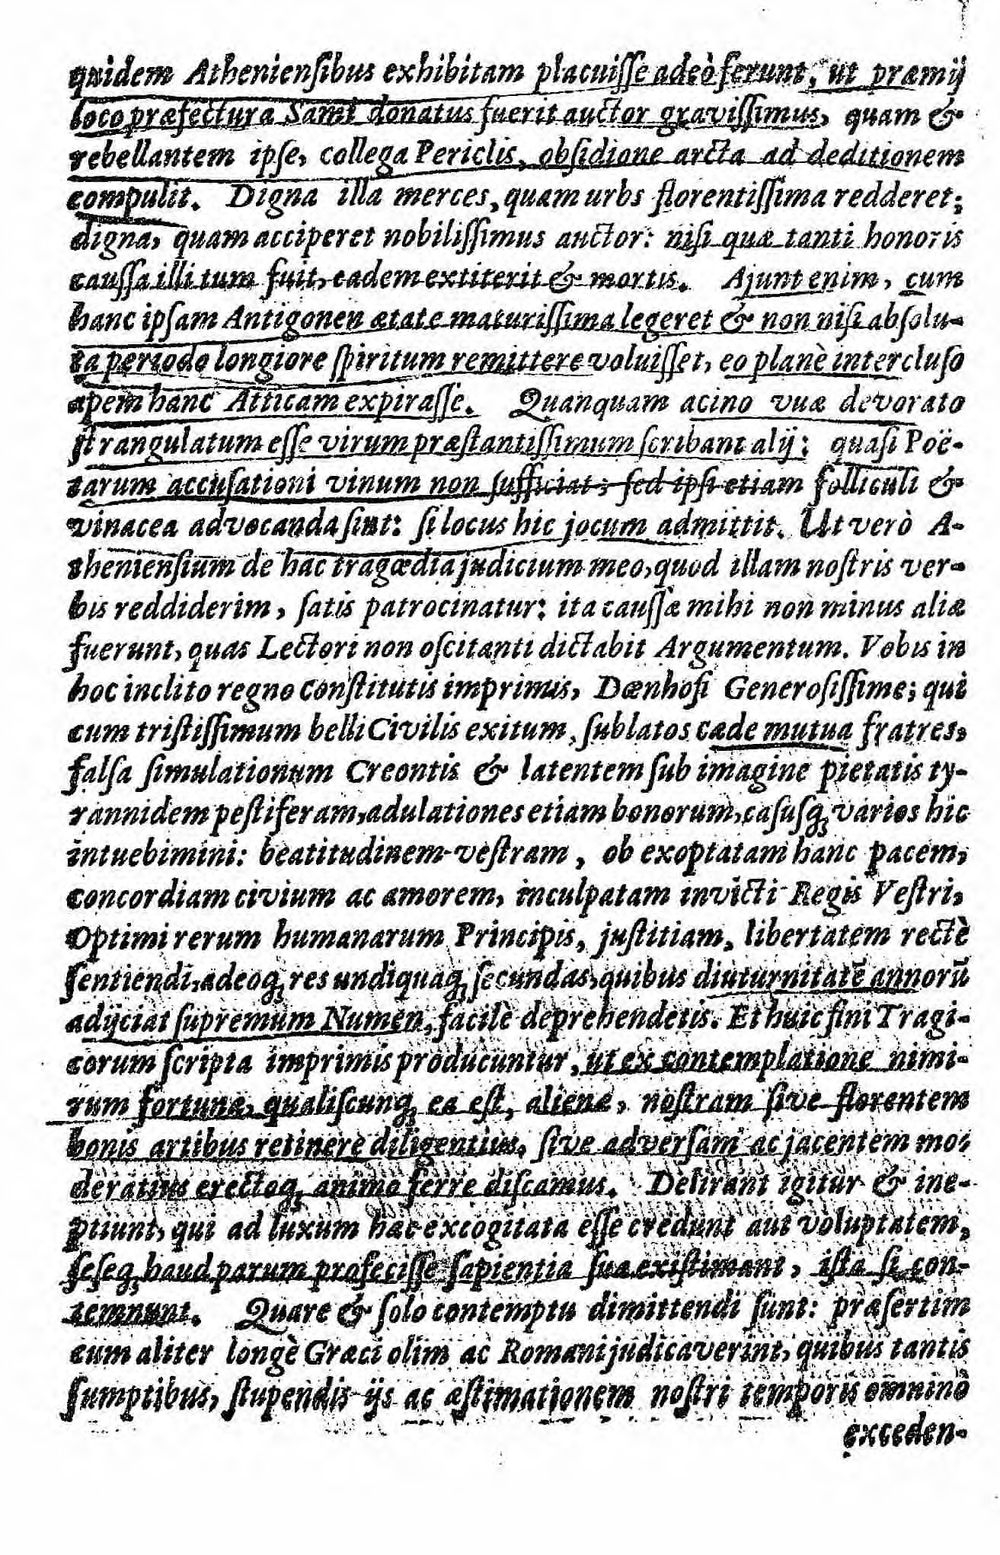 quidem Atheniensibus exhibitam placuisse adeò ferunt, ut præmij
loco præfectura Sami donatus fuerit auctor gravissimus, quam &
rebellantem ipse, collega Periclis, obsidione arcta ad deditionem
compulit. Digna illa merces, quam urbs florentissima redderet;
digna, quam acciperet nobilissimus auctor: nisi quæ tanti honoris
caussa illi tum fuit, eadem extiterit & mortis. Ajunt enim, cum
hanc ipsam Antigonen ætate maturissima legeret & non nisi absolu-
ta periodo longiore spiritum remittere voluisset, eo planè intercluso
apem hanc Atticam expirasse. Quanquam acino vuæ devorato
strangulatum esse virum præstantissimum scribant alij; quasi Poë-
tarum accusationi vinum non sufficiat; sed ipsi etiam folliculi &
vinacea advocanda sint: si locus hic jocum admittit. Ut verò A-
theniensium de hac tragœdia judicium meo, quod illam nostris ver-
bis reddiderim, satis patrocinatur: ita caussæ mihi non minus aliæ
fuerunt, quas Lectori non oscitanti dictabit Argumentum. Vobis in
hoc inclito regno constitutis imprimis, Dœnhofi Generosissime; qui
cum tristissimum belli Civilis exitum, sublatos cæde mutua fratres,
falsa simulationum Creontis & latentem sub imagine pietatis ty-
rannidem pestiferam, adulationes etiam bonorum, casusq; varios hic
intuebimini: beatitudinem vestram, ob exoptatam hanc pacem,
concordiam civium ac amorem, inculpatam invicti Regis Vestri,
Optimi rerum humanarum Principis, justitiam, libertatem rectè
sentiendi, adeoq; res undiquaq; secundas, quibus diuturnitatē annorū
adijciat supremum Numen, facile deprehendetis. Et huic fini Tragi-
corum scripta imprimis producuntur, ut ex contemplatione nimi-
rum fortunæ, qualiscunq; ea est, alienæ, nostram sive florentem
bonis artibus retinere diligentius, sive adversam ac jacentem mo-
deratius erectoq; animo ferre discamus. Delirant igitur & ine-
ptiunt, qui ad luxum hæc excogitata esse credunt aut voluptatem,
seseq; haud parum profecisse sapientia sua existimant, ista si con-
temnunt. Quare & solo contemptu dimittendi sunt: præsertim
cum aliter longè Græci olim ac Romani judicaverint, quibus tantis
sumptibus, stupendis ijs ac æstimationem nostri temporis omninò
exceden-